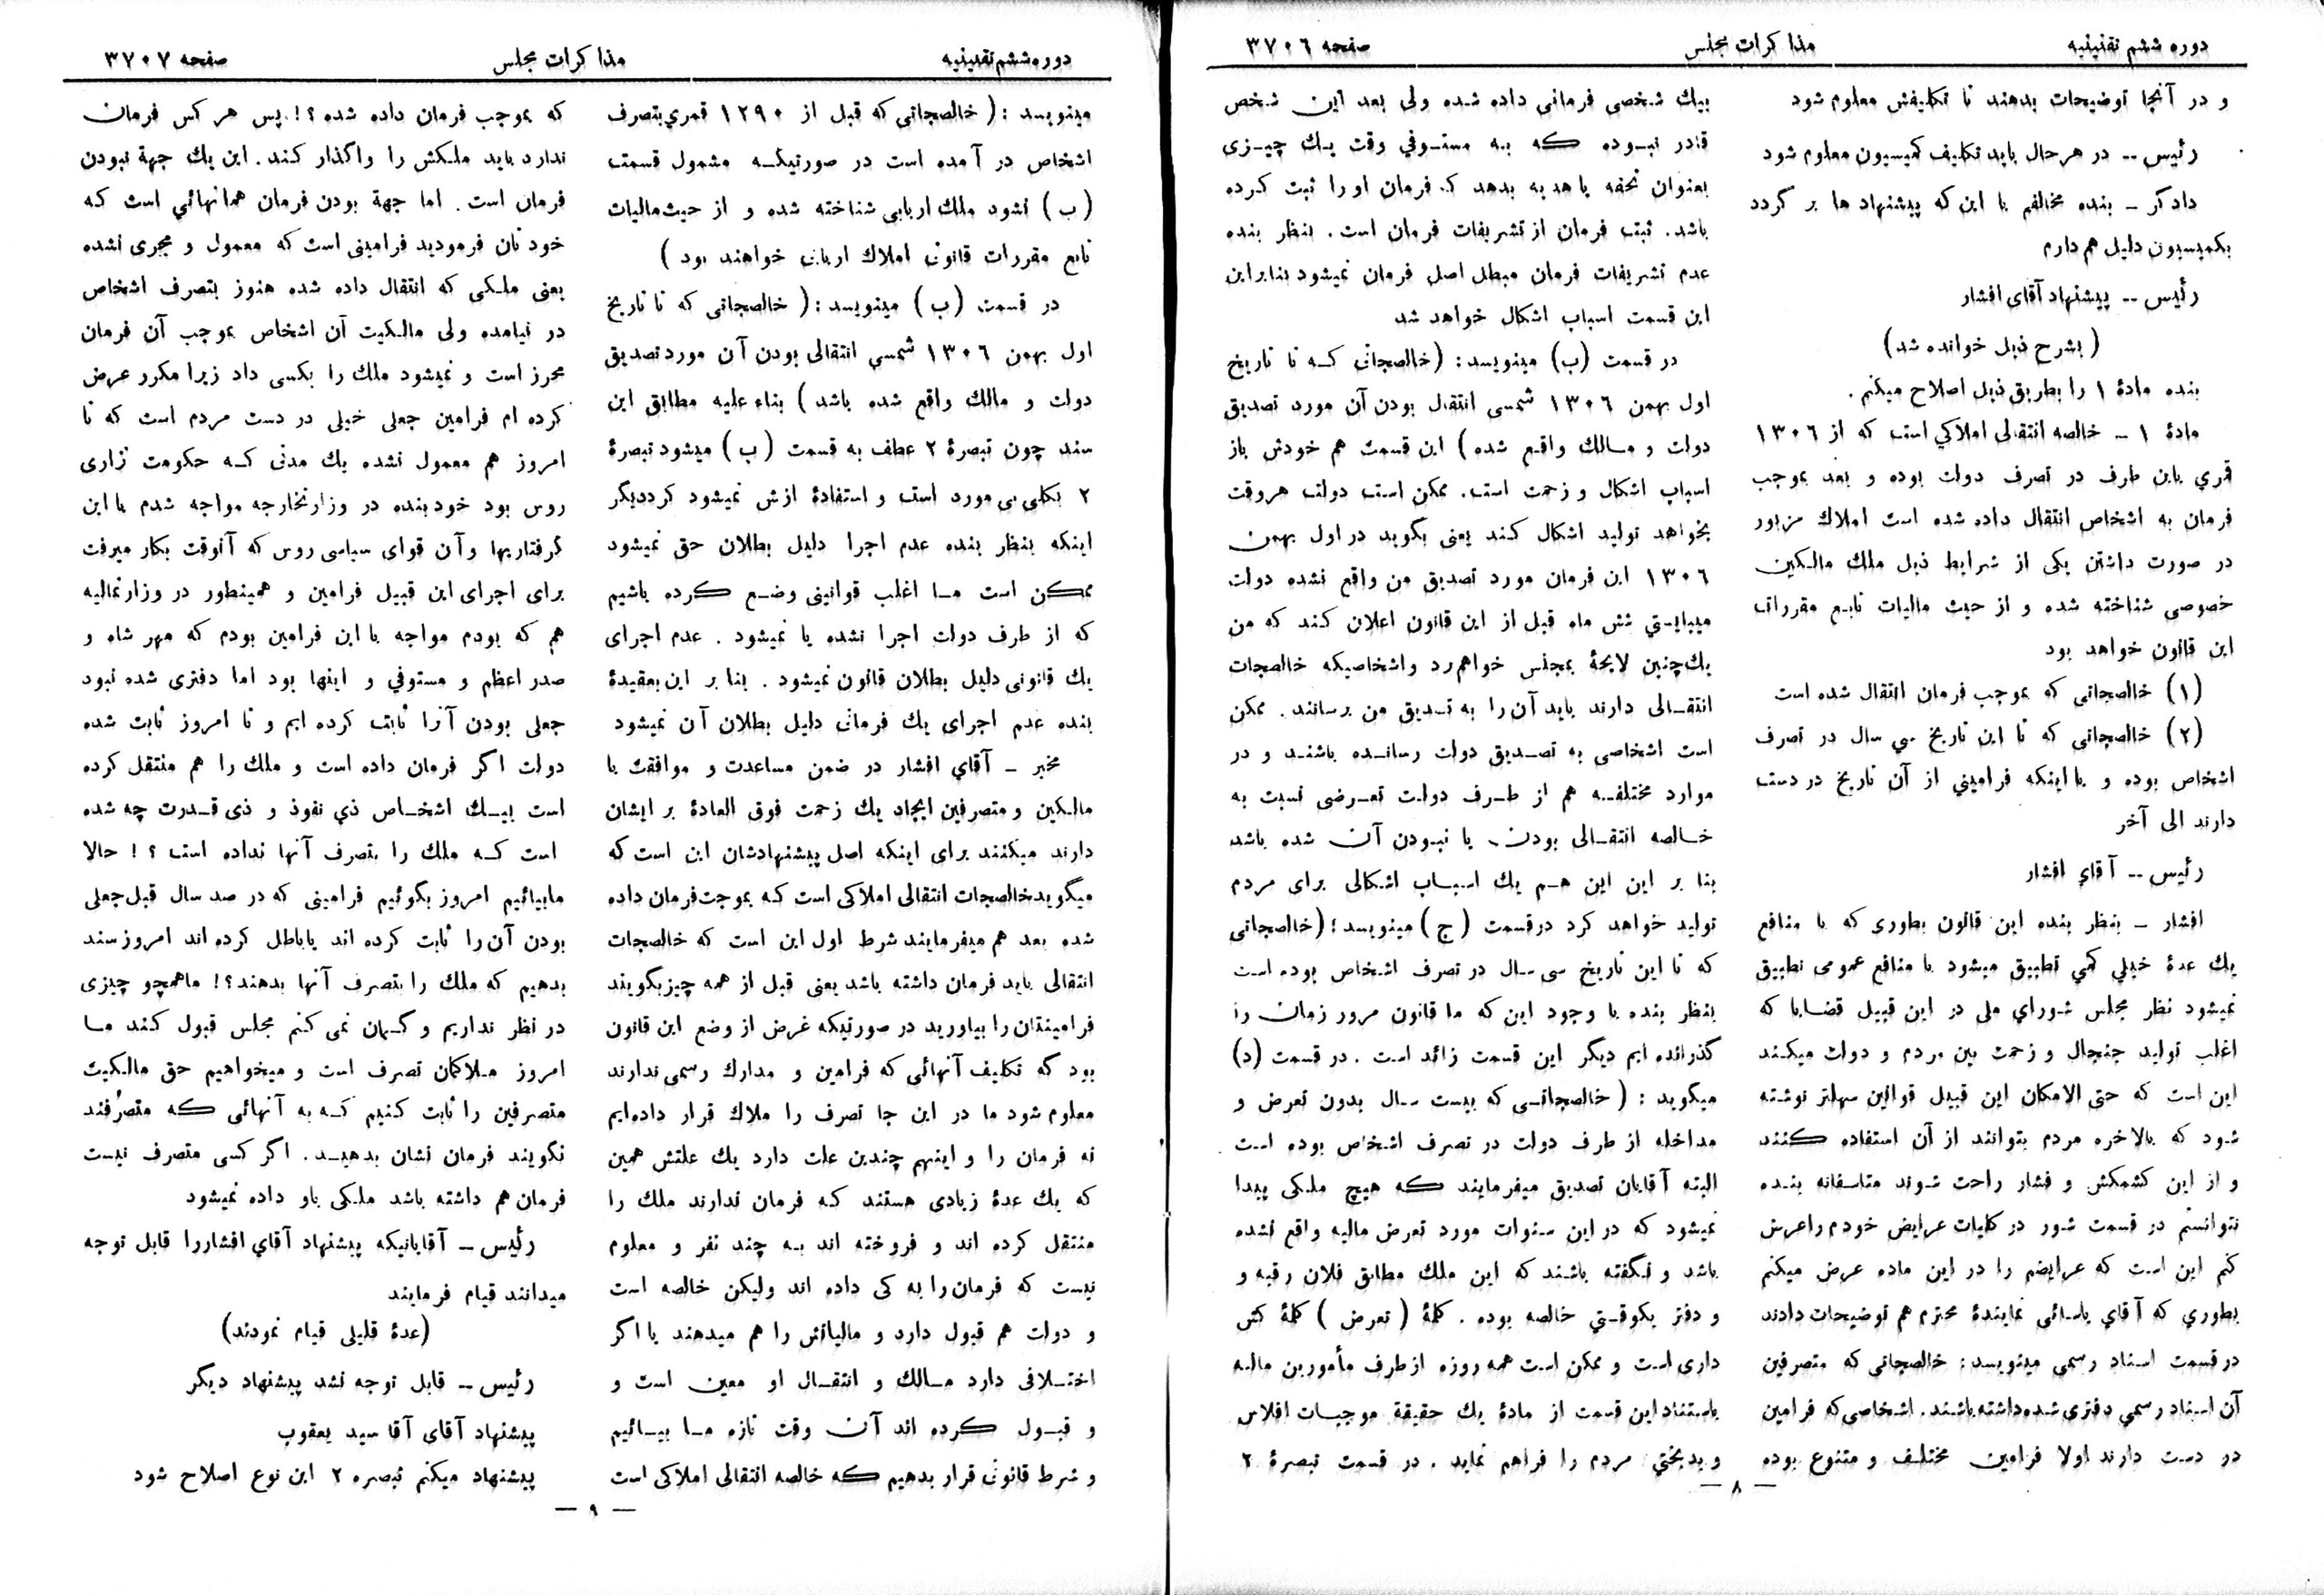 دوره ششم تقنینیه
مذاکرات مجلس
صفحه ۳۷۰۶
و در آنجا توضیحات بدهند تا تکلیفش معلوم شود
رئیس -- در هر حال باید تکلیف کمیسیون معلوم شود
دادگر - بنده مخالفم با این که پیشنهاد ها بر گردد
بکمیسیون دلیل هم دارم
رئیس -- پیشنهاد آقای افشار
(بشرح ذیل خوانده شد)
بنده مادهٔ ۱ را بطریق ذیل اصلاح میکنم.
مادهٔ ۱ - خالصه انتقالی املاکی است که از ۱۳۰۶
قمری باین طرف در تصرف دولت بوده و بعد بموجب
فرمان به اشخاص انتقال داده شده است املاك مزبور
در صورت داشتن یکی از شرایط ذیل ملك مالکین
خصوصی شناخته شده و از حیث مالیات تابع مقررات
این قانون خواهد بود
(۱) خالصجاتی که بموجب فرمان انتقال شده است
(۲) خالصجاتی که تا این تاریخ سی سال در تصرف
اشخاص بوده و یا اینکه فرامینی از آن تاریخ در دست
دارند الی آخر
رئیس -- آقای افشار
افشار - بنظر بنده این قانون بطوری که با منافع
یك عدهٔ خیلی کمی تطبیق میشود با منافع عمومی تطبیق
نمیشود نظر مجلس شورای ملی در این قبیل قضایا که
اغلب تولید جنجال و زحمت بین مردم و دولت میکند
این است که حتی الامکان این قبیل قوانین سهلتر نوشته
شود که بالاخره مردم بتوانند از آن استفاده کنند
و از این کشمکش و فشار راحت شوند متاسفانه بنده
نتوانستم در قسمت شور در کلیات عرایض خودم را عرض
کنم این است که عرایضم را در این ماده عرض میکنم
بطوری که آقای یاسائی نمایندهٔ محترم هم توضیحات دادند
در قسمت اسناد رسمی مینویسد: خالصجاتی که متصرفین
آن اسناد رسمی دفتری شده داشته باشند. اشخاصی که فرامین
در دست دارند اولا فرامین مختلف و متنوع بوده
بیك شخصی فرمانی داده شده ولی بعد این شخص
قادر نبوده که به مستوفی وقت یك چیزی
بعنوان تحفه یا هدیه بدهد که فرمان او را ثبت کرده
باشد. ثبت فرمان از تشریفات فرمان است. بنظر بنده
عدم تشریفات فرمان مبطل اصل فرمان نمیشود بنابراین
این قسمت اسباب اشکال خواهد شد
در قسمت (ب) مینویسد: (خالصجاتی که تا تاریخ
اول بهمن ۱۳۰۶ شمسی انتقال بودن آن مورد تصدیق
دولت و مالك واقع شده) این قسمت هم خودش باز
اسباب اشکال و زحمت است. ممکن است دولت هروقت
بخواهد تولید اشکال کند یعنی بگوید در اول بهمن
۱۳۰۶ این فرمان مورد تصدیق من واقع نشده دولت
میبایستی شش ماه قبل از این قانون اعلان کند که من
یك چنین لایحهٔ بمجلس خواهم رد و اشخاصیکه خالصجات
انتقالی دارند باید آن را به تصدیق من برسانند. ممکن
است اشخاصی به تصدیق دولت رسانده باشند و در
موارد مختلفه هم از طرف دولت تعرضی نسبت به
خالصه انتقالی بودن یا نبودن آن شده باشد
بنا بر این این هم یك اسباب اشکالی برای مردم
تولید خواهد کرد درقسمت (ج) مینویسد: (خالصجاتی
که تا این تاریخ سی سال در تصرف اشخاص بوده است
بنظر بنده با وجود این که ما قانون مرور زمان را
گذرانده ایم دیگر این قسمت زائد است. در قسمت (د)
میگوید: (خالصجاتی که بیست سال بدون تعرض و
مداخله از طرف دولت در تصرف اشخاص بوده است
البته آقایان تصدیق میفرمایند که هیچ ملکی پیدا
نمیشود که در این سنوات مورد تعرض مالیه واقع نشده
باشد و نگفته باشند که این ملك مطابق فلان رقبه و
و دفتر یکوقتی خالصه بوده. کلمهٔ (تعرض) کلمهٔ کش
داری است و ممکن است همه روزه از طرف مأمورین مالیه
باستناد این قسمت از مادهٔ یك حقیقة موجبات افلاس
و بدبختی مردم را فراهم نماید. در قسمت تبصرهٔ ۲
— ۸ —
دوره ششم تقنینیه
مذاکرات مجلس
صفحه ۳۷۰۷
مینویسد: (خالصجاتی که قبل از ۱۲۹۰ قمری بتصرف
اشخاص در آمده است در صورتیکه مشمول قسمت
(ب) نشود ملك اربابی شناخته شده و از حیث مالیات
تابع مقررات قانون املاك اربابی خواهند بود)
در قسمت (ب) مینویسد: (خالصجاتی که تا تاریخ
اول بهمن ۱۳۰۶ شمسی انتقالی بودن آن مورد تصدیق
دولت و مالك واقع شده باشد) بناء علیه مطابق این
سند چون تبصرهٔ ۲ عطف به قسمت (ب) میشود تبصرهٔ
۲ بکلی بی مورد است و استفادهٔ ازش نمیشود کرد دیگر
اینکه بنظر بنده عدم اجرا دلیل بطلان حق نمیشود
ممکن است ما اغلب قوانینی وضع کرده باشیم
که از طرف دولت اجرا نشده یا نمیشود. عدم اجرای
یك قانونی دلیل بطلان قانون نمیشود. بنا بر این بعقیدهٔ
بنده عدم اجرای یك فرمانی دلیل بطلان آن نمیشود
مخبر - آقای افشار در ضمن مساعدت و موافقت با
مالکین و متصرفین ایجاد یك زحمت فوق العادهٔ بر ایشان
دارند میکنند برای اینکه اصل پیشنهادشان این است که
میگوید خالصجات انتقالی املاکی است که بموجت فرمان داده
شده بعد هم میفرمایند شرط اول این است که خالصجات
انتقالی باید فرمان داشته باشد یعنی قبل از همه چیز بگویند
فرامینتان را بیاورید در صورتیکه غرض از وضع این قانون
بود که تکلیف آنهائی که فرامین و مدارك رسمی ندارند
معلوم شود ما در این جا تصرف را ملاك قرار داده‌ایم
نه فرمان را و اینهم چندین علت دارد یك علتش همین
که یك عدهٔ زیادی هستند که فرمان ندارند ملك را
منتقل کرده اند و فروخته اند به چند نفر و معلوم
نیست که فرمان را به کی داده اند ولیکن خالصه است
و دولت هم قبول دارد و مالیاتش را هم میدهند یا اگر
اختلافی دارد مالك و انتقال او معین است و
و قبول کرده اند آن وقت تازه ما بیائیم
و شرط قانونی قرار بدهیم که خالصه انتقالی املاکی است
که بموجب فرمان داده شده؟! پس هر کس فرمان
ندارد باید ملکش را واگذار کند. این یك جهة نبودن
فرمان است. اما جهة بودن فرمان همانهائی است که
خود تان فرمودید فرامینی است که معمول و مجری نشده
یعنی ملکی که انتقال داده شده هنوز بتصرف اشخاص
در نیامده ولی مالکیت آن اشخاص بموجب آن فرمان
محرز است و نمیشود ملك را بکسی داد زیرا مکرر عرض
کرده ام فرامین جعلی خیلی در دست مردم است که تا
امروز هم معمول نشده یك مدتی که حکومت تزاری
روس بود خود بنده در وزارتخارجه مواجه شدم با این
گرفتاریها و آن قوای سیاسی روس که آنوقت بکار میرفت
برای اجرای این قبیل فرامین و همینطور در وزارتمالیه
هم که بودم مواجه با این فرامین بودم که مهر شاه و
صدر اعظم و مستوفی و اینها بود اما دفتری شده نبود
جعلی بودن آنرا ثابت کرده ایم و تا امروز ثابت شده
دولت اگر فرمان داده است و ملك را هم منتقل کرده
است بیك اشخاص ذی نفوذ و ذی قدرت چه شده
است که ملك را بتصرف آنها نداده است؟! حالا
مابیائیم امروز بگوئیم فرامینی که در صد سال قبل جعلی
بودن آن را ثابت کرده اند یاباطل کرده اند امروز سند
بدهیم که ملك را بتصرف آنها بدهند؟! ماهمچو چیزی
در نظر نداریم و گمان نمی کنم مجلس قبول کند ما
امروز ملاکمان تصرف است و میخواهیم حق مالکیت
متصرفین را ثابت کنیم که به آنهائی که متصرفند
نگویند فرمان نشان بدهید. اگر کسی متصرف نیست
فرمان هم داشته باشد ملکی باو داده نمیشود
رئیس - آقایانیکه پیشنهاد آقای افشاررا قابل توجه
میدانند قیام فرمایند
(عدهٔ قلیلی قیام نمودند)
رئیس -- قابل توجه نشد پیشنهاد دیگر
پیشنهاد آقای آقا سید یعقوب
پیشنهاد میکنم تبصره ۲ این نوع اصلاح شود
— ۹ —